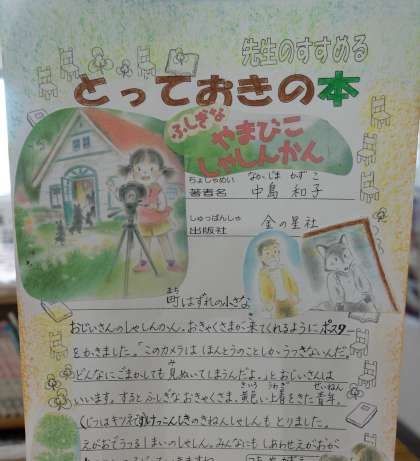 先生のすすめる
とっておきの本
ふしぎな
やまびこ
しゃしんかん
ちょしゃめい なかじま かずこ
著者名 中島 和子
しゅっぱんしゃ
出版社 金の星社
まち
町はずれの小さな
おじいさんのしゃしんかん。おきゃくさまが来てくれるようにポスター
をかきました。「このカメラは ほんとうのことしかうつさないんだ。
み
どんなにごまかしても見ぬいてしまうんだよ。」とおじいさんは
きいろ うわぎ せいねん
いいます。すると ふしぎなおきゃくさま。黄色い上着をきた青年。
じつはキツネで けっこんしきのきねんしゃしんも とりました。
えがおでうつる しまいのしゃしん。みんなにも しあわせえがおが